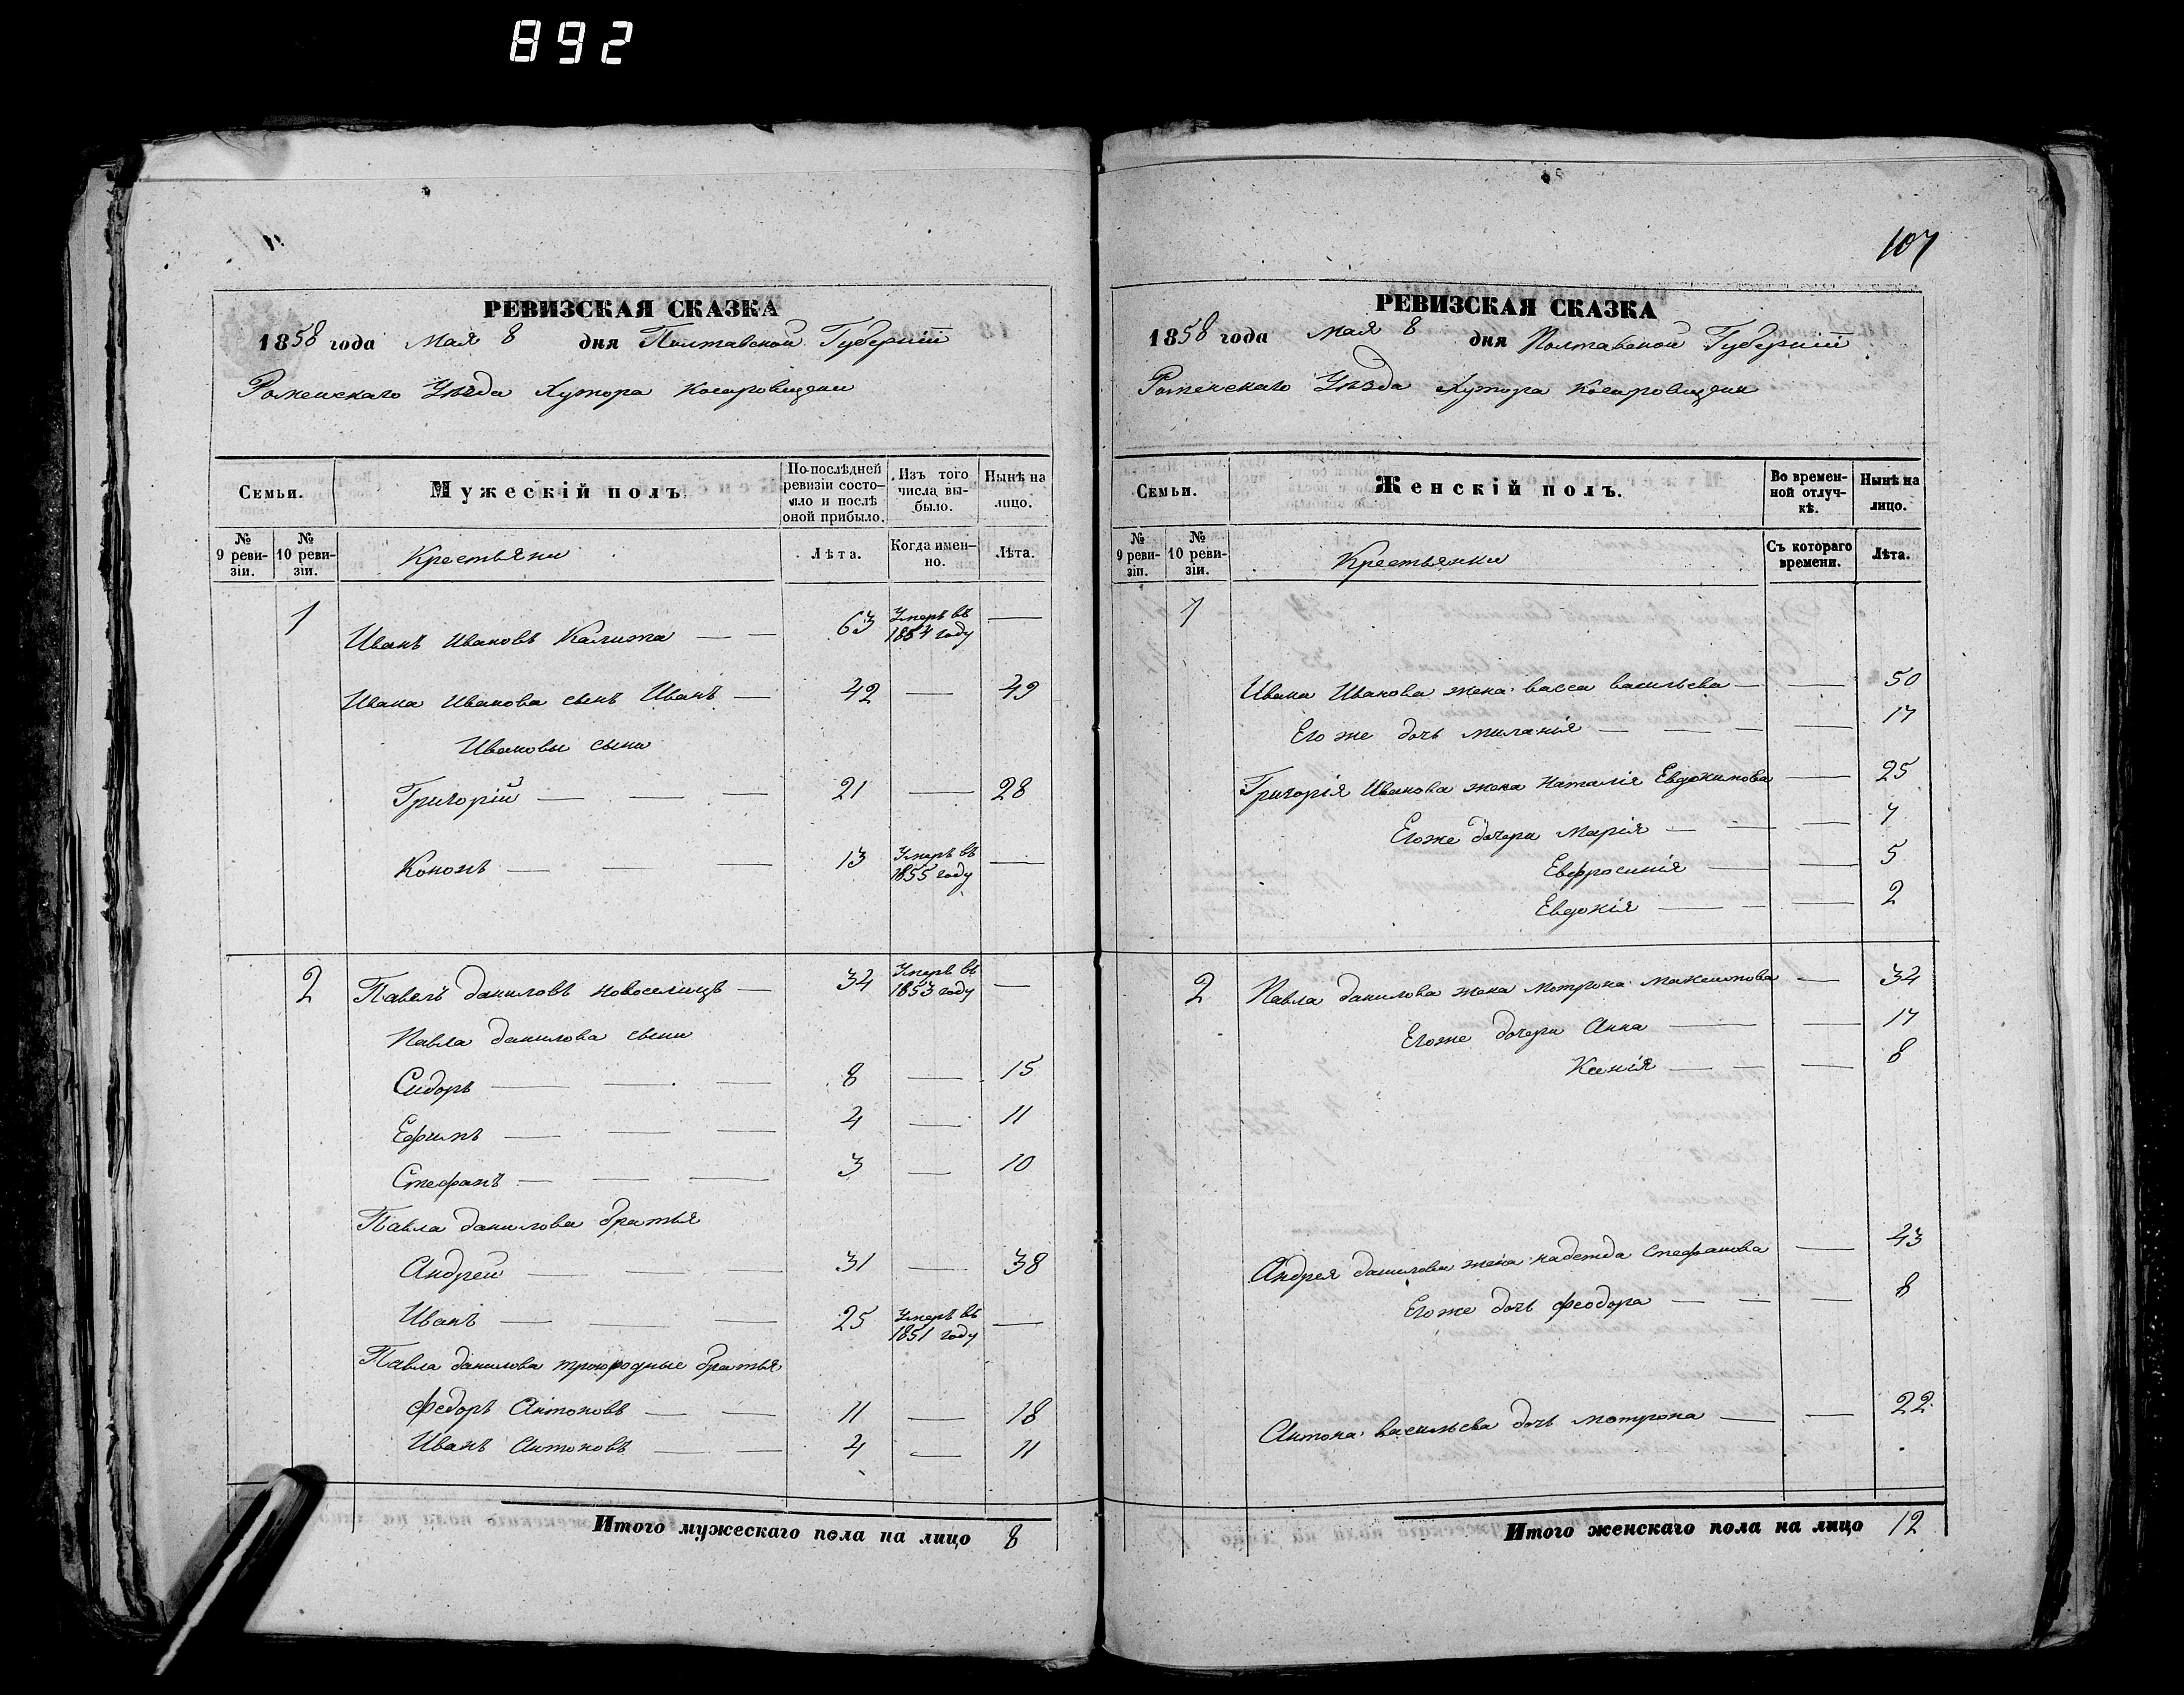 892
РЕВИЗСКАЯ СКАЗКА
1858 года Мая 8 дня Полтавской Губерніи
Роменскаго Уѣзда Хутора Косаровщини
Семьи.
Мужескій полъ.
По послѣдней ревизіи состояло и послѣ оной прибыло.
Изъ того числа выбыло.
Нынѣ на лицо.
№ 9 ревизіи.
№ 10 ревизіи.
Крестьяни
Лѣта.
Когда именно.
Лѣта.
1 Иванъ Ивановъ Калита — — 63 Умеръ въ 1854 году —
Ивана Иванова сынъ Иванъ — 42 — 49
Ивановы сыни
Григорій — — — 21 — 28
Кононъ — — — 13 Умеръ въ 1855 году —
2 Павелъ Даниловъ Новоселицъ — 34 Умеръ въ 1853 году —
Павла Данилова сыни
Сидоръ — — — 8 — 15
Ефимъ — — — 4 — 11
Стефанъ — — — 3 — 10
Павла Данилова братья
Андрей — — — 31 — 38
Иванъ — — — 25 Умеръ въ 1851 году —
Павла Данилова троюродные братья
Федоръ Антоновъ — — 11 — 18
Иванъ Антоновъ — — 4 — 11
Итого мужескаго пола на лицо 8
107
РЕВИЗСКАЯ СКАЗКА
1858 года мая 8 дня Полтавской Губерніи
Роменскаго Уѣзда Хутора Косаровщини
Семьи.
Женскій полъ.
Во временной отлучкѣ.
Нынѣ на лицо.
№ 9 ревизіи.
№ 10 ревизіи.
Крестьянки
Съ котораго времени.
Лѣта.
1
Ивана Иванова жена Васса Васильева — — 50
Его же дочь Миланія — — — — 17
Григорія Иванова жена Наталія Евдокимова — 25
Егоже дочери Марія — — — 7
Евфросинія — — 5
Евдокія — — — 2
2 Павла Данилова жена Мотрона Максимова — 34
Егоже дочери Анна — — 17
Ксенія — — — 8
Андрея Данилова жена Надежда Стефанова — 43
Егоже дочь Феодора — — — 8
Антона Васильева дочь Мотрона — — 22
Итого женскаго пола на лицо 12